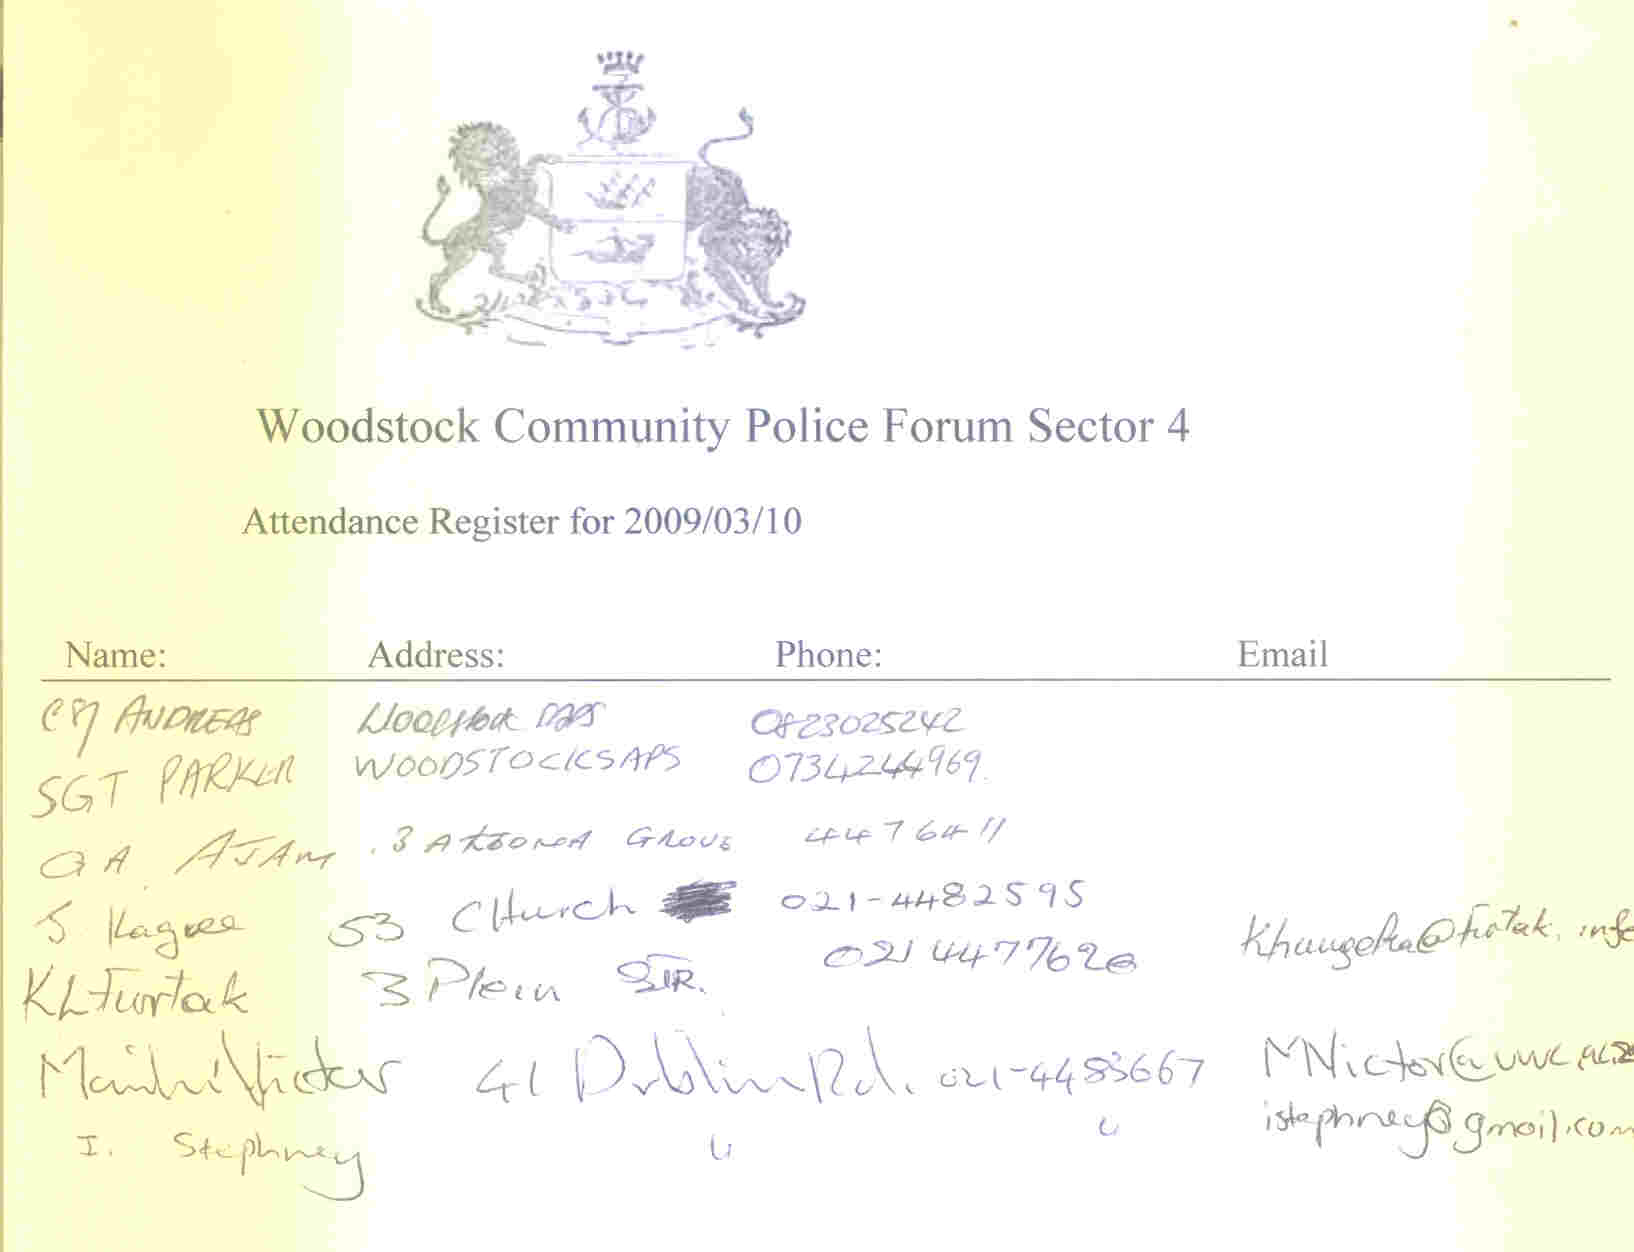 Woodstock Community Police Forum Sector 4
Attendance Register for 2009/03/10
Name: Address: Phone: Email
ANDREAS Woodstock 0823025242
SGT PARKER WOODSTOCK SAPS 0734244969.
GA AJAM 3 GROVE 4476411
S Kagee 53 CHurch 021-4482595
KL Furtak 3 Plein STR. 021 4477620
Victor 41 Dublin Rd. 021-4483667 MNictor@uwc.ac.z
I. Stephney u u istephney@gmail.com